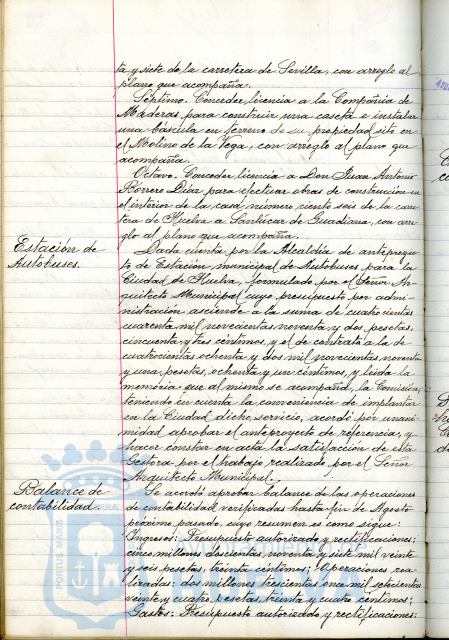 ta y siete de la carretera de Sevilla, con arreglo al
plano que acompaña.
Séptimo. Conceder licencia a la Compañia de
Maderas para construir una caseta e instalar
una báscula en terreno de su propiedad sito en
el Molino de la Vega, con arreglo al plano que
acompaña.
Octavo. Conceder licencia a Don Juan Antonio
Borrero Díaz para efectuar obras de construcción en
el interior de la casa número ciento seis de la carre
tera de Huelva a Sanlúcar de Guadiana, con arre
glo al plano que acompaña.
Estación de
Autobuses.
Dada cuenta por la Alcaldía de anteproyec
to de Estación municipal de Autobuses para la
Ciudad de Huelva, formulado por el Señor Ar
quitecto Municipal cuyo presupuesto por admi
nistración asciende a la suma de cuatrocientas
cuarenta mil novecientas noventa y dos pesetas,
cincuenta y tres céntimos, y el de contrata a la de
cuatrocientas ochenta y dos mil novecientas noventa
y una pesetas, ochenta y un céntimos, y leida la
memoria que al mismo se acompaña, la Comisión,
teniendo en cuenta la conveniencia de implantar
en la Ciudad dicho servicio, acordó por unani
midad aprobar el anteproyecto de referencia, y
hacer constar en acta la satisfacción de esta
Gestora por el trabajo realizado por el Señor
Arquitecto Municipal.
Balance de
contabilidad.
Se acordó aprobar balance de las operaciones
de contabilidad verificadas hasta fin de Agosto
próximo pasado, cuyo resumen es como sigue:
Ingresos: Presupuesto autorizado y rectificaciones:
cinco millones doscientos noventa y siete mil veinte
y seis pesetas, treinta céntimos; Operaciones rea
lizadas: dos millones trescientos once mil setecientas
veinte y cuatro pesetas, treinta y cuatro céntimos;
Gastos: Presupuesto autorizado y rectificaciones:
PORTUS MARIS